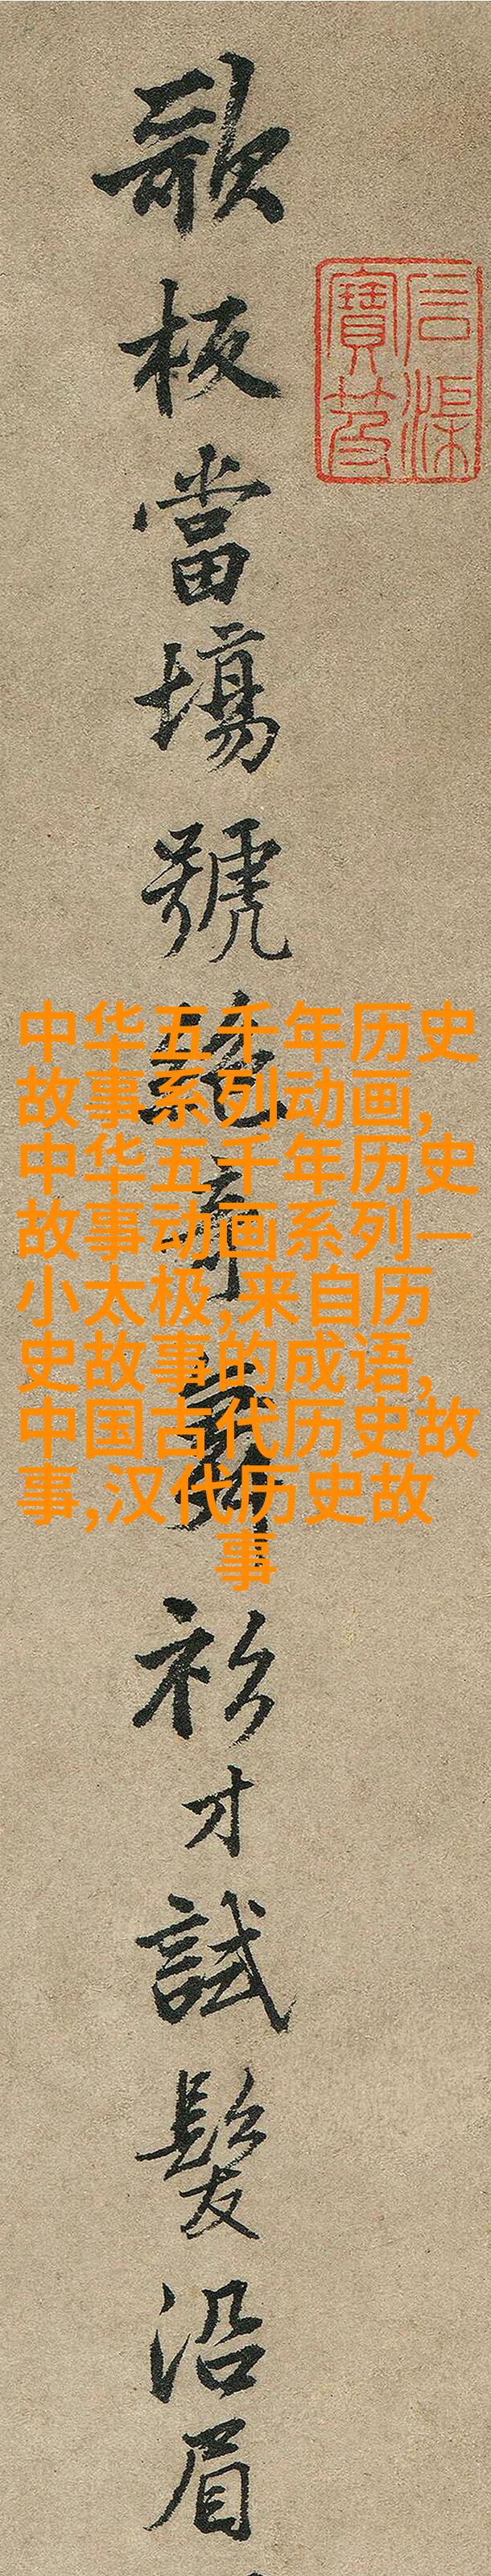 歌板當塲號絶奇舞衫才試髮沿眉
中华五千年历史
故事系列动画,
中华五千年历史
故事动画系列—
小太极,来自历
史故事的成语,
中国古代历史故
事,汉代历史故
事